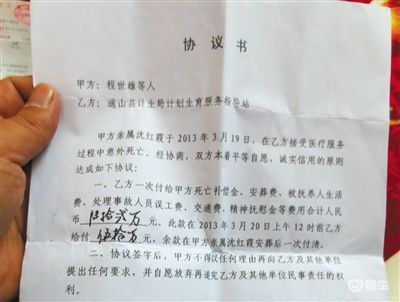 协议书
甲方：程世雄等人
乙方：通山县计生局计划生育服务指导站
甲方亲属沈红霞于2013年3月19日，在乙方接受医疗服
务过程中意外死亡。经协商，双方本着平等自愿、诚实信用的原则
达成如下协议：
一、乙方一次付给甲方死亡补偿金、安葬费、被抚养人生活
费、处理事故人员误工费、交通费、精神抚慰金等费用合计人民
币 伍拾贰万 元，此款在2013年3月20日上午12时前乙方
给付 伍拾万 元，余款在甲方亲属沈红霞安葬后一次付清。
二、协议签字后，甲方不得以任何理由再向乙方及其他单位
提出任何要求，并自愿放弃再追究乙方及其他单位民事责任的权
利。
易车